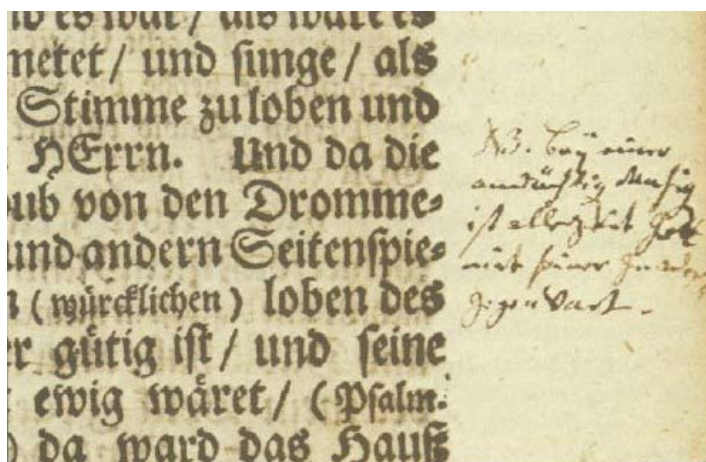 nd es war / als wäre es
metet / und sunge / als
Stimme zu loben und
HErrn. Und da die
ub von den Dromme⸗
und andern Seitenspie⸗
n (würcklichen) loben des
er gütig ist / und seine
ewig wäret / (Psalm.
) da ward das Hauß
NB. Beÿ einer
andächtig Musiq
ist allezeit Gott
mit seiner Gnaden
Gegenwart.